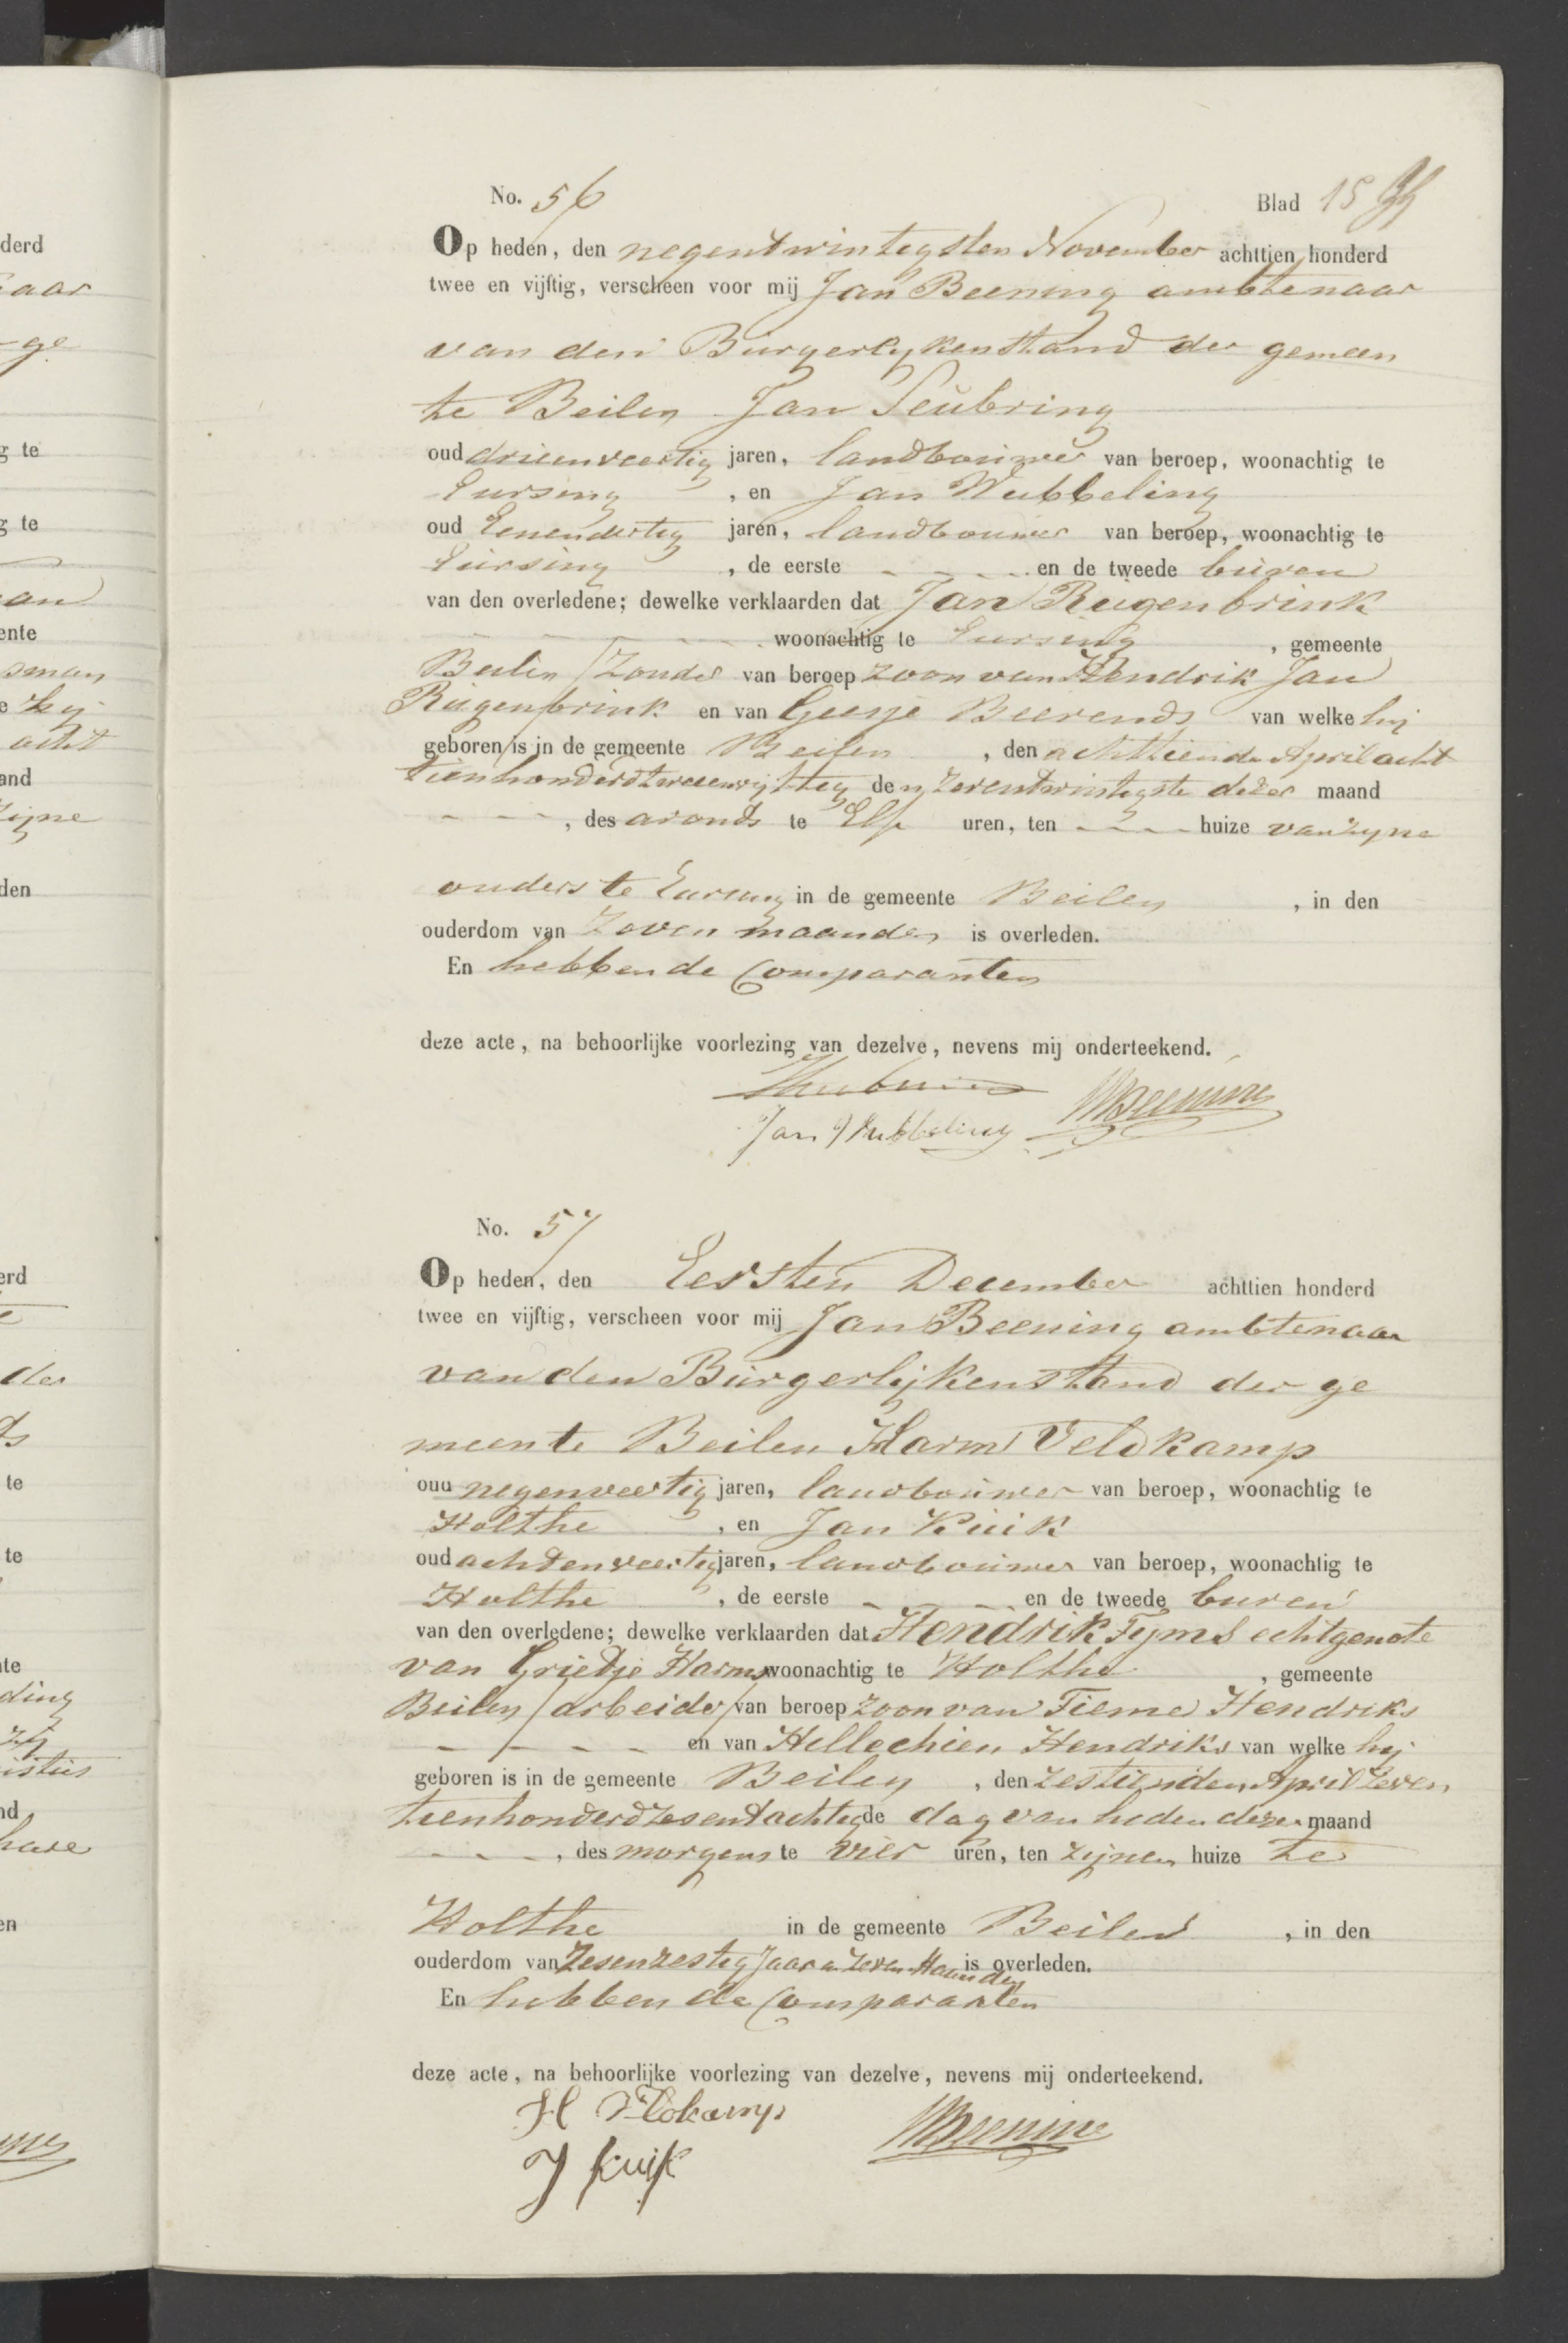 No. 56 Blad 15
Op heden, den negentwintegsten November achttien honderd
twee en vijftig, verscheen voor mij Jan Beening ambtenaar
van den Burgerlykenstand der gemeen
te Beilen Jan Seubring
oud drieenveertig jaren, landbouwer van beroep, woonachtig te
Eursing , en Jan Wubbeling
oud Eenendertig jaren, landbouwer van beroep, woonachtig te
Eursing , de eerste - - - en de tweede buren
van den overledene; dewelke verklaarden dat Jan Rugenbrink
woonachtig te Eursing , gemeente
Beilen / Zonder van beroep zoon van Hendrik Jan
Rugenbrink en van Geesje Beerends van welke hij
geboren is in de gemeente Beilen , den achttiende April acht
tienhonderdtweeenvijfteg den zeventwintegste dezer maand
- - - , des avonds te Elf uren, ten - - - huize van zyne
ouders te Eursing in de gemeente Beilen , in den
ouderdom van Zeven maanden is overleden.
En hebben de Comparanten
deze acte, na behoorlijke voorlezing van dezelve, nevens mij onderteekend.
Beening
Jan Wubbeling
No. 57
Op heden, den Eersten December achttien honderd
twee en vijftig, verscheen voor mij Jan Beening ambtenaar
van den Burgerlijkenstand der ge
meente Beilen Harm Veldkamp
oud negenveertig jaren, landbouwer van beroep, woonachtig te
Holthe , en Jan Kuik
oud achtenveertig jaren, landbouwer van beroep, woonachtig te
Holthe , de eerste - - - en de tweede buren
van den overledene; dewelke verklaarden dat Hendrik Tyms echtgenote
van Grietje Harms woonachtig te Holthe , gemeente
Beilen / arbeider / van beroep zoon van Tieme Hendriks
- - - - en van Hellechien Hendriks van welke hij
geboren is in de gemeente Beilen , den zestienden April zeven
tienhonderdzesentachtig de dag van heden dezer maand
- - - , des morgens te vier uren, ten zijnen huize te
Holthe in de gemeente Beilen , in den
ouderdom van Zesenzestig Jaar en zeven Maanden is overleden.
En hebben de Comparanten
deze acte, na behoorlijke voorlezing van dezelve, nevens mij onderteekend.
H Veldkamp
Beening
J Kuik